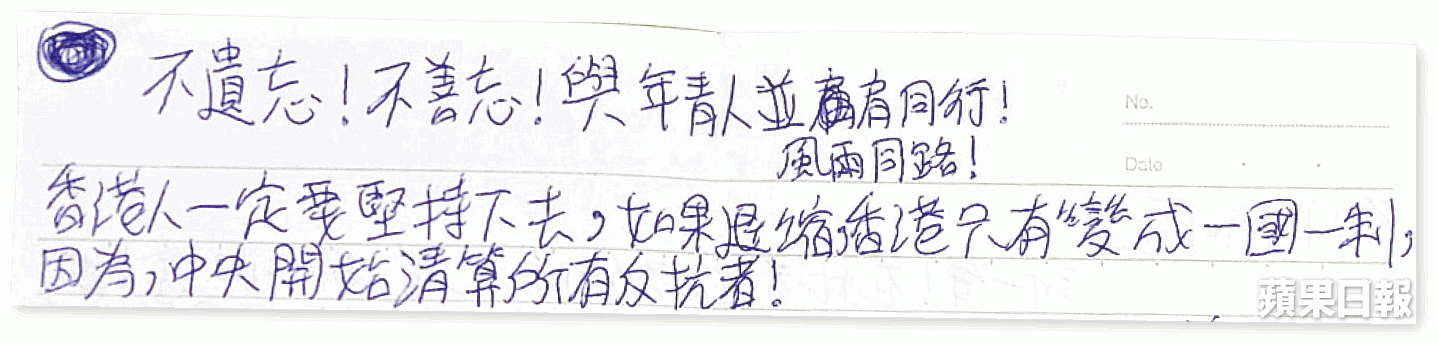 不遺忘！不善忘！與年青人並肩同行！
No.
風雨同路！
Date
香港人一定要堅持下去，如果退縮香港只有變成一國一制，
因為，中央開始清算所有反抗者！
蘋果日報